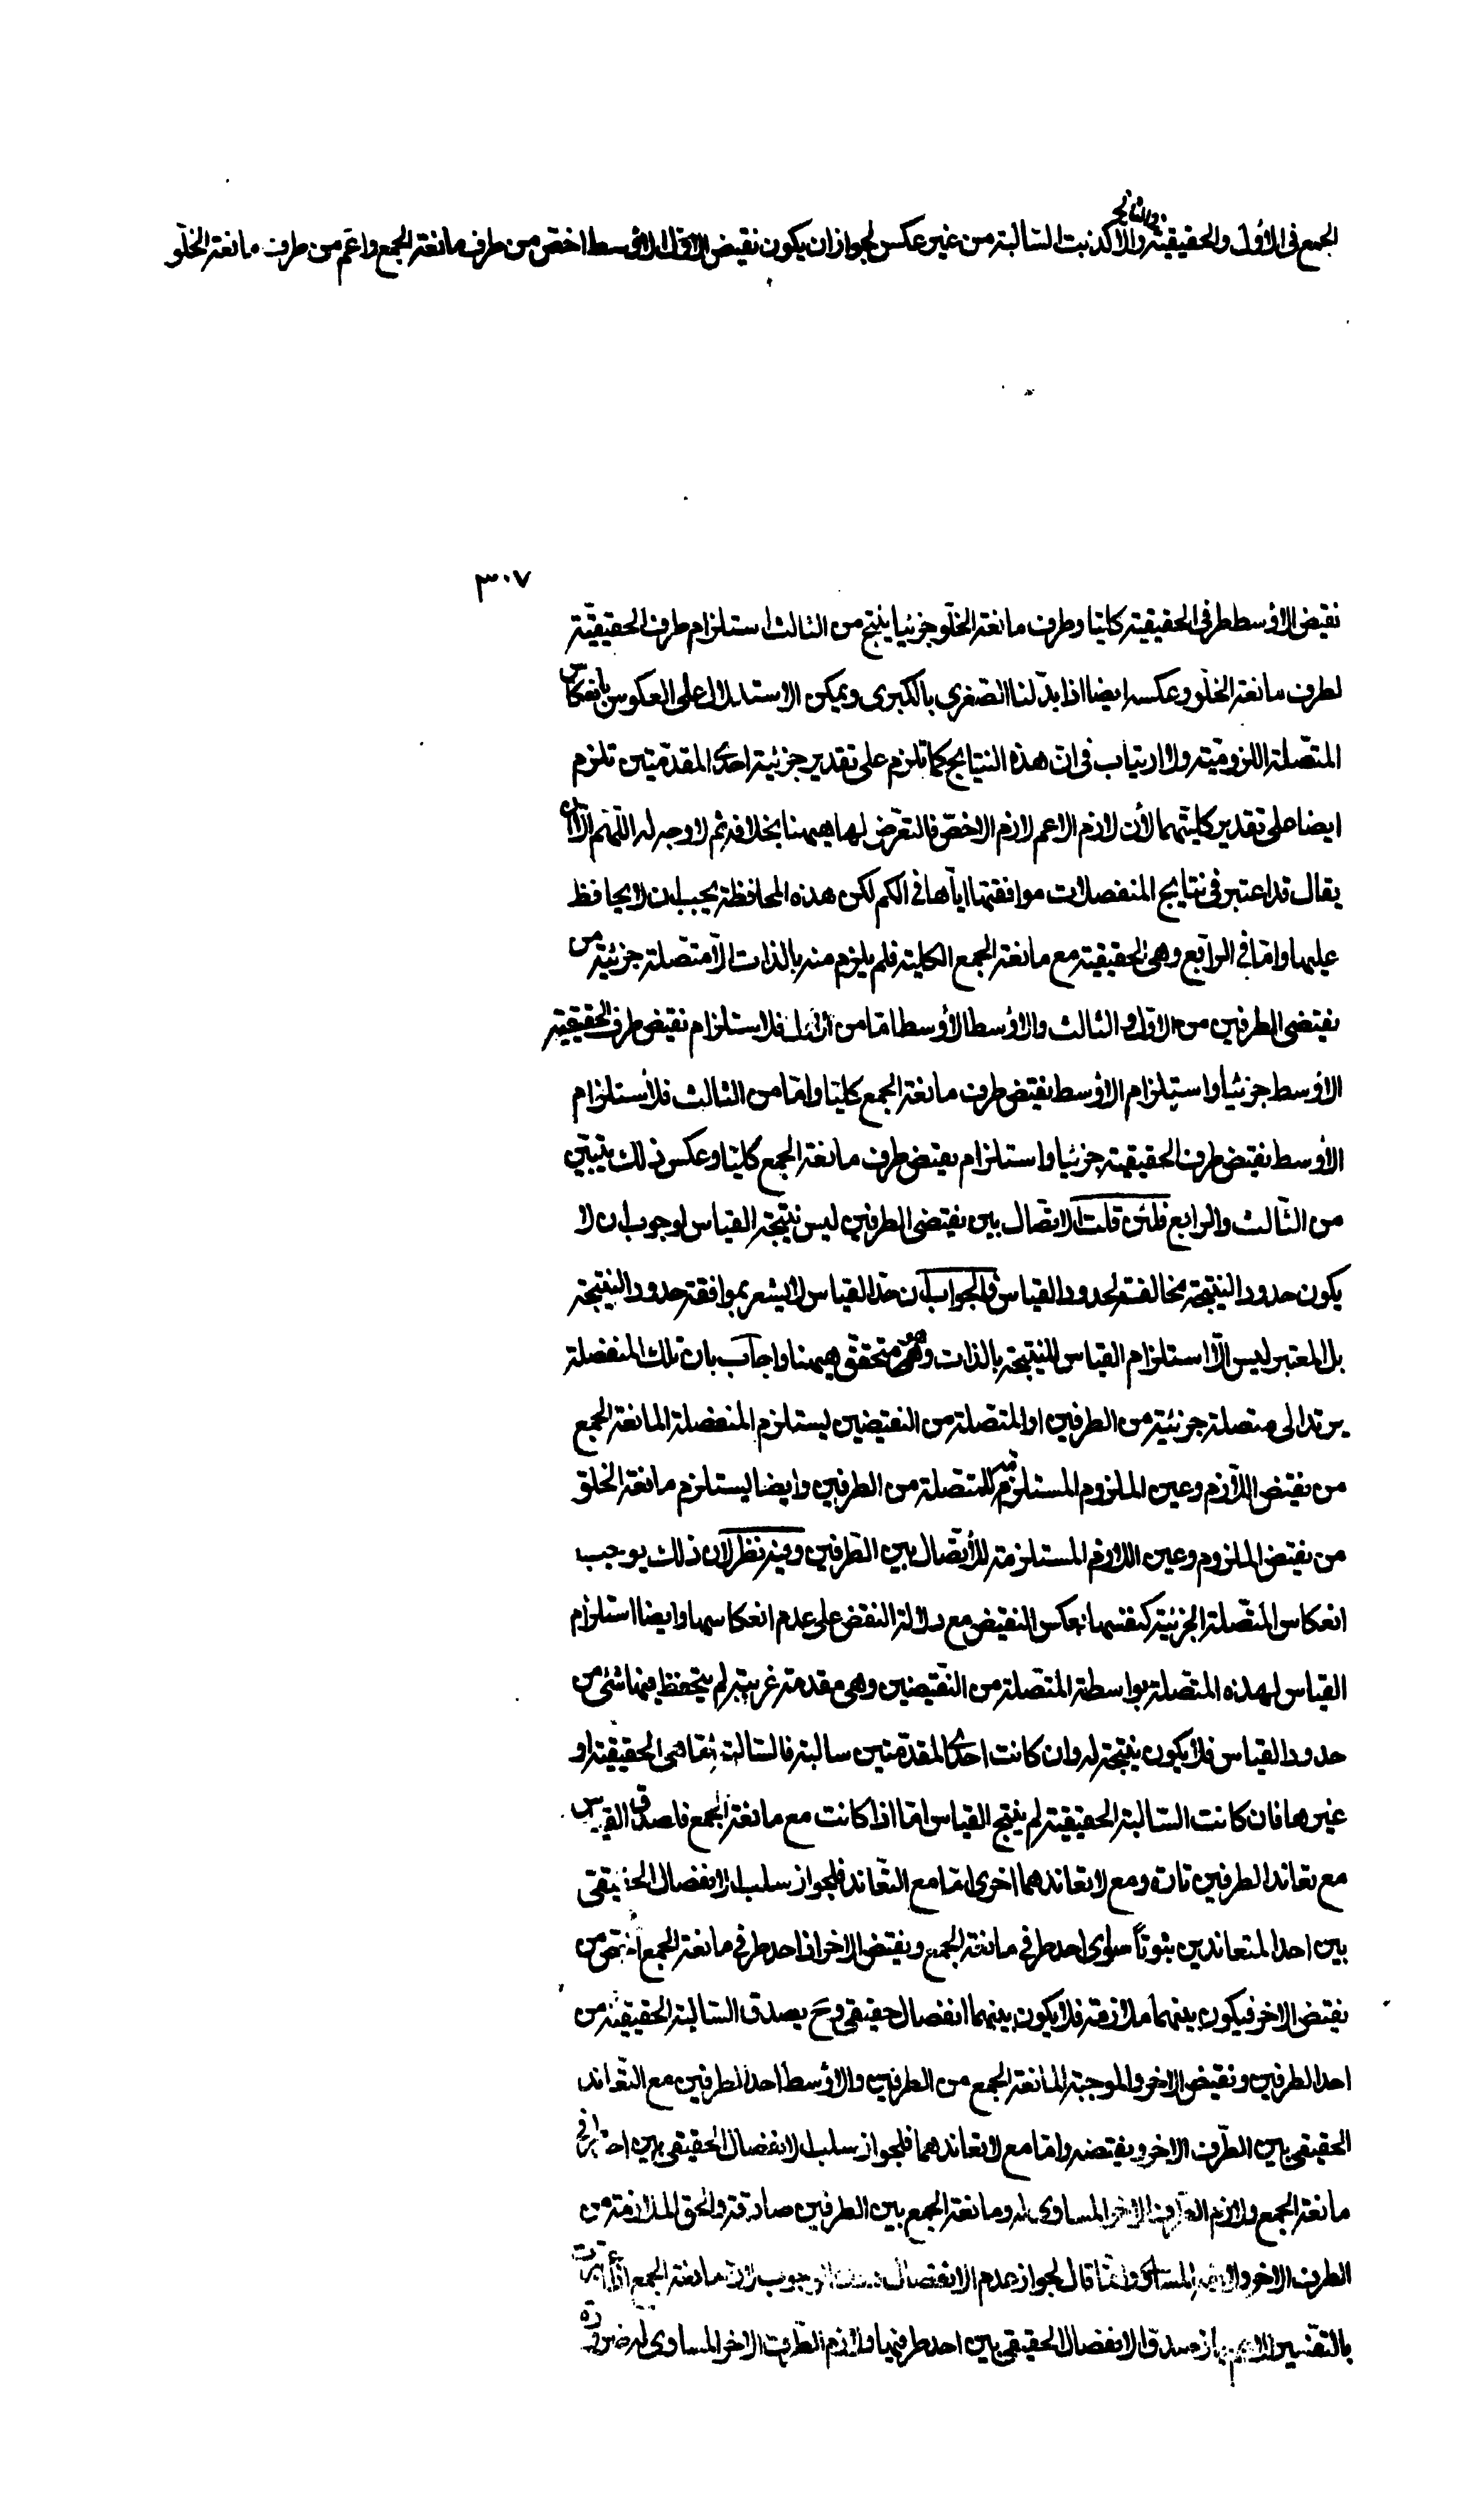 الجمع في الأول والحقيقية والثالث والا كذبت السالبة من غير عكس لجواز ان يكون نقيض الاوسط اخص من طرف مانعة الجمع واعم من طرف مانعة الخلو
٣٠٧
نقيض الاوسط طرفي الحقيقية كليتا وطرف مانعة الخلو جزئيا ينتج من الثالث استلزام طرف الحقيقية
لطرف مانعة الخلو وعكسه ايضا اذا بدلنا الصغرى بالكبرى ويمكن الاستدلال على العكوس بانعكاس
المتصلة اللزومية ولا ارتياب في ان هذه النتايج كما تلزم على تقدير جزئية احدى المقدمتين تلزم
ايضا على تقدير كليتهما لأن لازم الاعم لازم الاخص فالتعرض لها ههنا بخلافه ثم لا وجه له اللهم الا ان
يقال قد اعتبر في نتايج المنفصلات موافقتها اياها في الكم لكن هذه المحافظة يجب ان لا يحافظ
عليها واما في الرابع وهى الحقيقية مع مانعة الجمع الكلية فلم يلزم منه بالذات الا متصلة جزئية من
نقيضى الطرفين من الاول والثالث والاوسط الاوسط اما من الاول فلاستلزام نقيض طرف الحقيقية
الاوسط جزئيا واستلزام الاوسط نقيض طرف مانعة الجمع كليا واما من الثالث فلاستلزام
الأوسط نقيض طرف الحقيقية جزئيا واستلزام نقيض طرف مانعة الجمع كليا وعكس ذلك يتبين
من الثالث والرابع فلئن قلت الاتصال بين نقيضى الطرفين ليس نتيجة القياس لوجوب ان لا
يكون حدود النتيجة مخالفة لحدود القياس فالجواب ان حد القياس لا يشعر بموافقة حدود النتيجة
بل المعتبر ليس الا استلزام القياس للنتيجة بالذات وهو متحقق ههنا واجاب بان تلك المنفصلة
يرتد الى متصلة جزئية من الطرفين اذ المتصلة من النقيضين يستلزم المنفصلة المانعة الجمع
من نقيض اللازم وعين الملزوم المستلزمة للمتصلة من الطرفين وايضا يستلزم مانعة الخلو
من نقيض الملزوم وعين اللازم المستلزمة للأتصال بين الطرفين وفيه نظر لان ذلك يوجب
انعكاس المتصلة الجزئية كنفسها بعكس النقيض مع دلالة النقض على عدم انعكاسها وايضا استلزام
القياس لهذه المتصلة بواسطة المتصلة من النقيضين وهى مقدمة غريبة لم يتحفظ فيها شئ من
حدود القياس فلا يكون نتيجة له وان كانت احدى المقدمتين سالبة فالسالبة اما هى الحقيقية او
غيرها فان كانت السالبة الحقيقية لم ينتج القياس اما اذا كانت مع مانعة الجمع فلصدق القياس
مع تعاند الطرفين تارة ومع لا تعاندهما اخرى اما مع التعاند فلجواز سلب الانفصال الحقيقى
بين احد المتعاندين ثبوتا سواى احد طرفي مانعة الجمع ونقيض الاخر اذ احد طرفي مانعة الجمع اخص من
نقيض الاخر فيكون بينهما ملازمة فلا يكون بينهما انفصال حقيقى وح يصدق السالبة الحقيقية من
احد الطرفين ونقيض الاخر والموجبة المانعة الجمع من الطرفين والاوسط احد الطرفين مع التعاند
الحقيقى بين الطرف الاخر ونقيضه واما مع لا تعاندهما فلجواز سلب الانفصال الحقيقى بين احد طرفي
مانعة الجمع ولازم الطرف الاخر المساوى له ومانعة الجمع بين الطرفين صادقة والحق الملازمة من
الطرف الاخر واللازم المساوى وانما قال لجواز عدم الانفصال مانعة الجمع
بالتفسير الاعم صدق الانفصال الحقيقى بين احد طرفيها ولازم الطرف الاخر المساوى له ضرورة